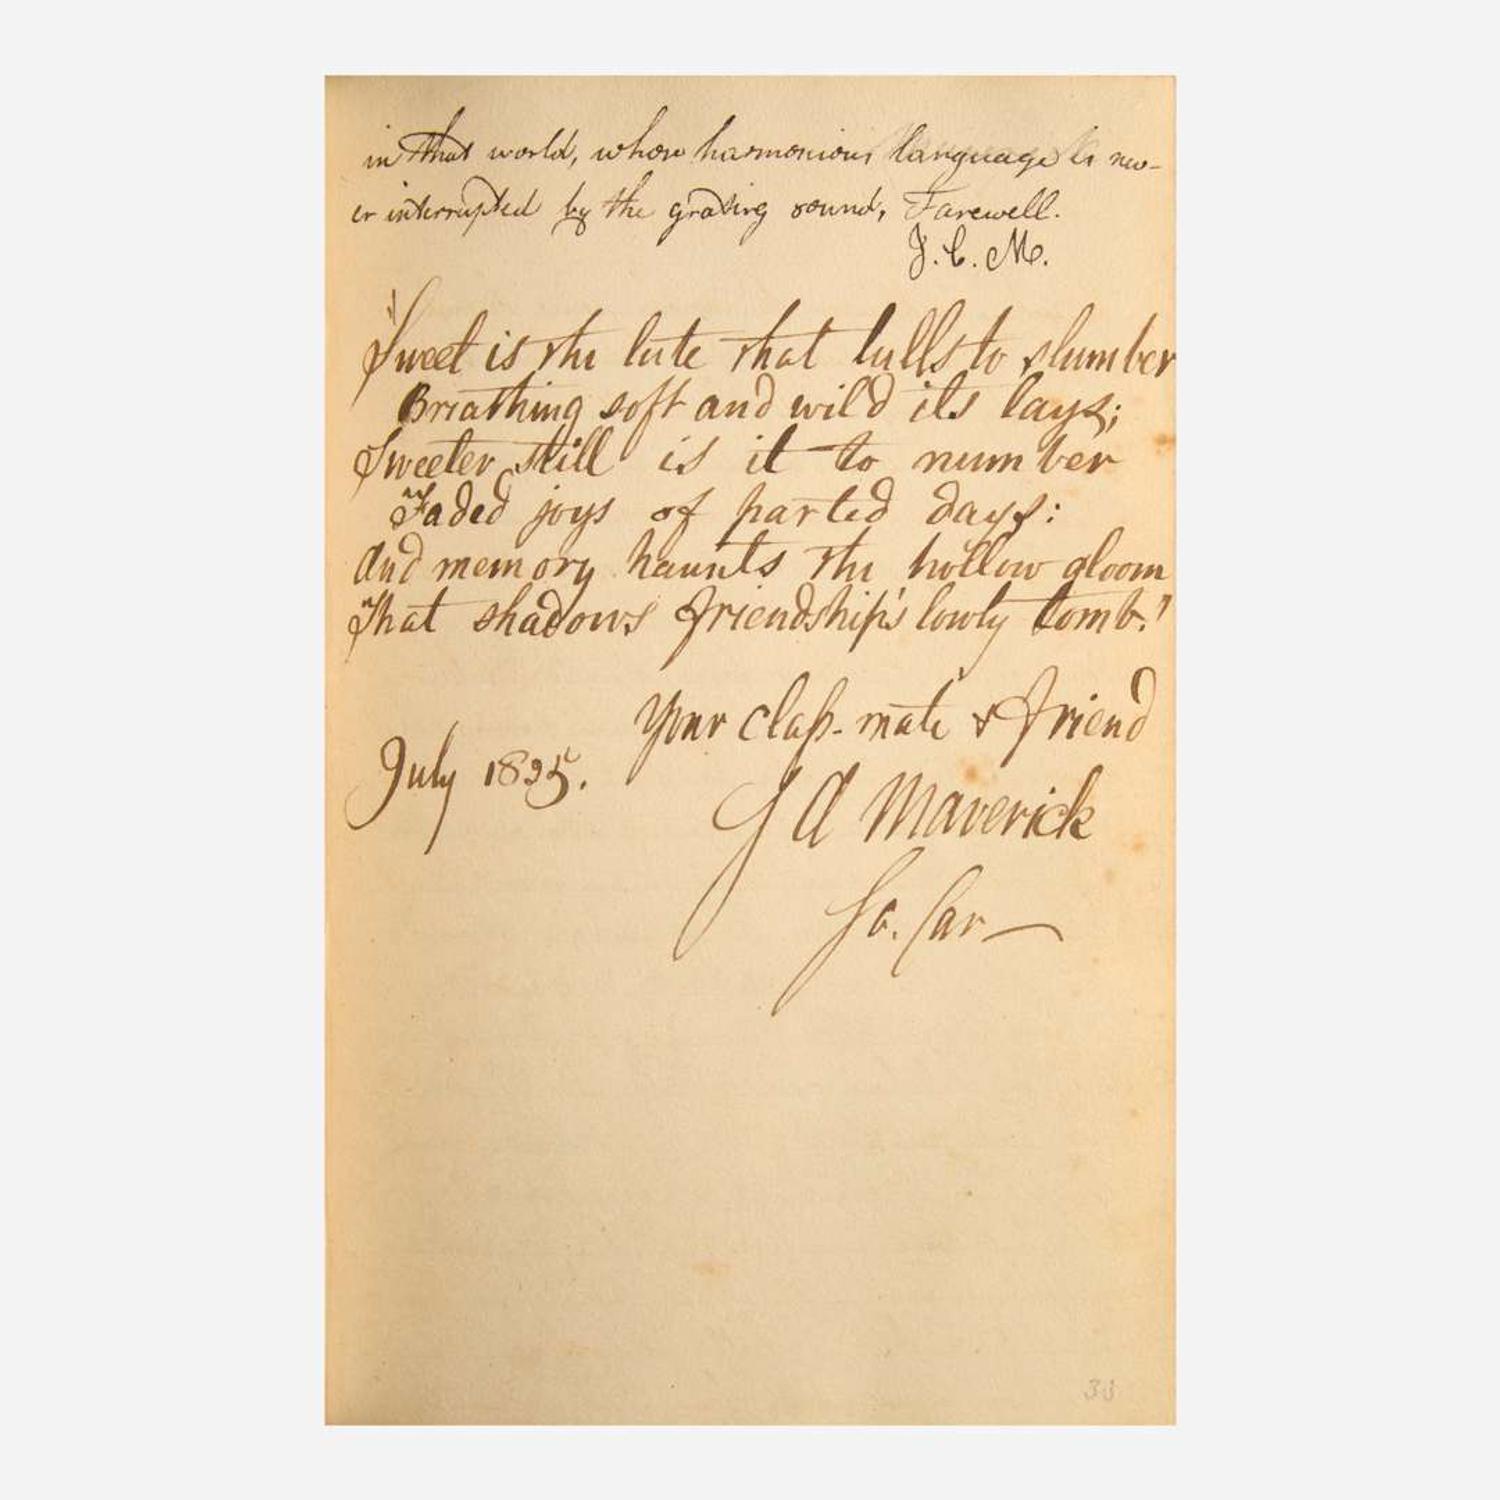 in that world, whose harmonious language is nev-
er interrupted by the grating sound, Farewell.
J. C. M.
"Sweet is the lute that lulls to slumber
Breathing soft and wild its lays;
Sweeter still is it to number
Faded joys of parted days:
And memory haunts the hollow gloom
That shadows friendship's lowly tomb."
Your claſs-mate & friend
July 1825.
S A Maverick
So. Car—